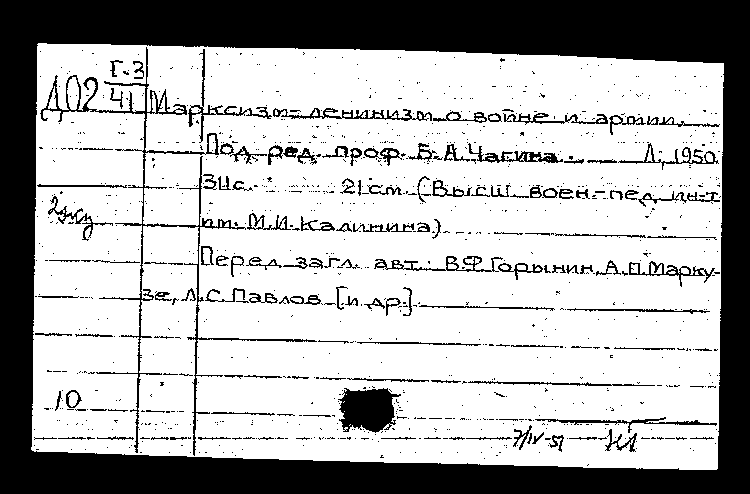 Г.3
Д02 41 Марксизм-ленинизм о войне и армии.
Под ред. проф. Б.А.Чагина. Л., 1950
311с. 21см. (Высш. воен.-пед. ин-т
им. М.И.Калинина)
2экз
Перед загл. авт: В.Ф.Горынин, А.П.Марку-
зе, Л.С.Павлов [и др.]
10
7/IV-51